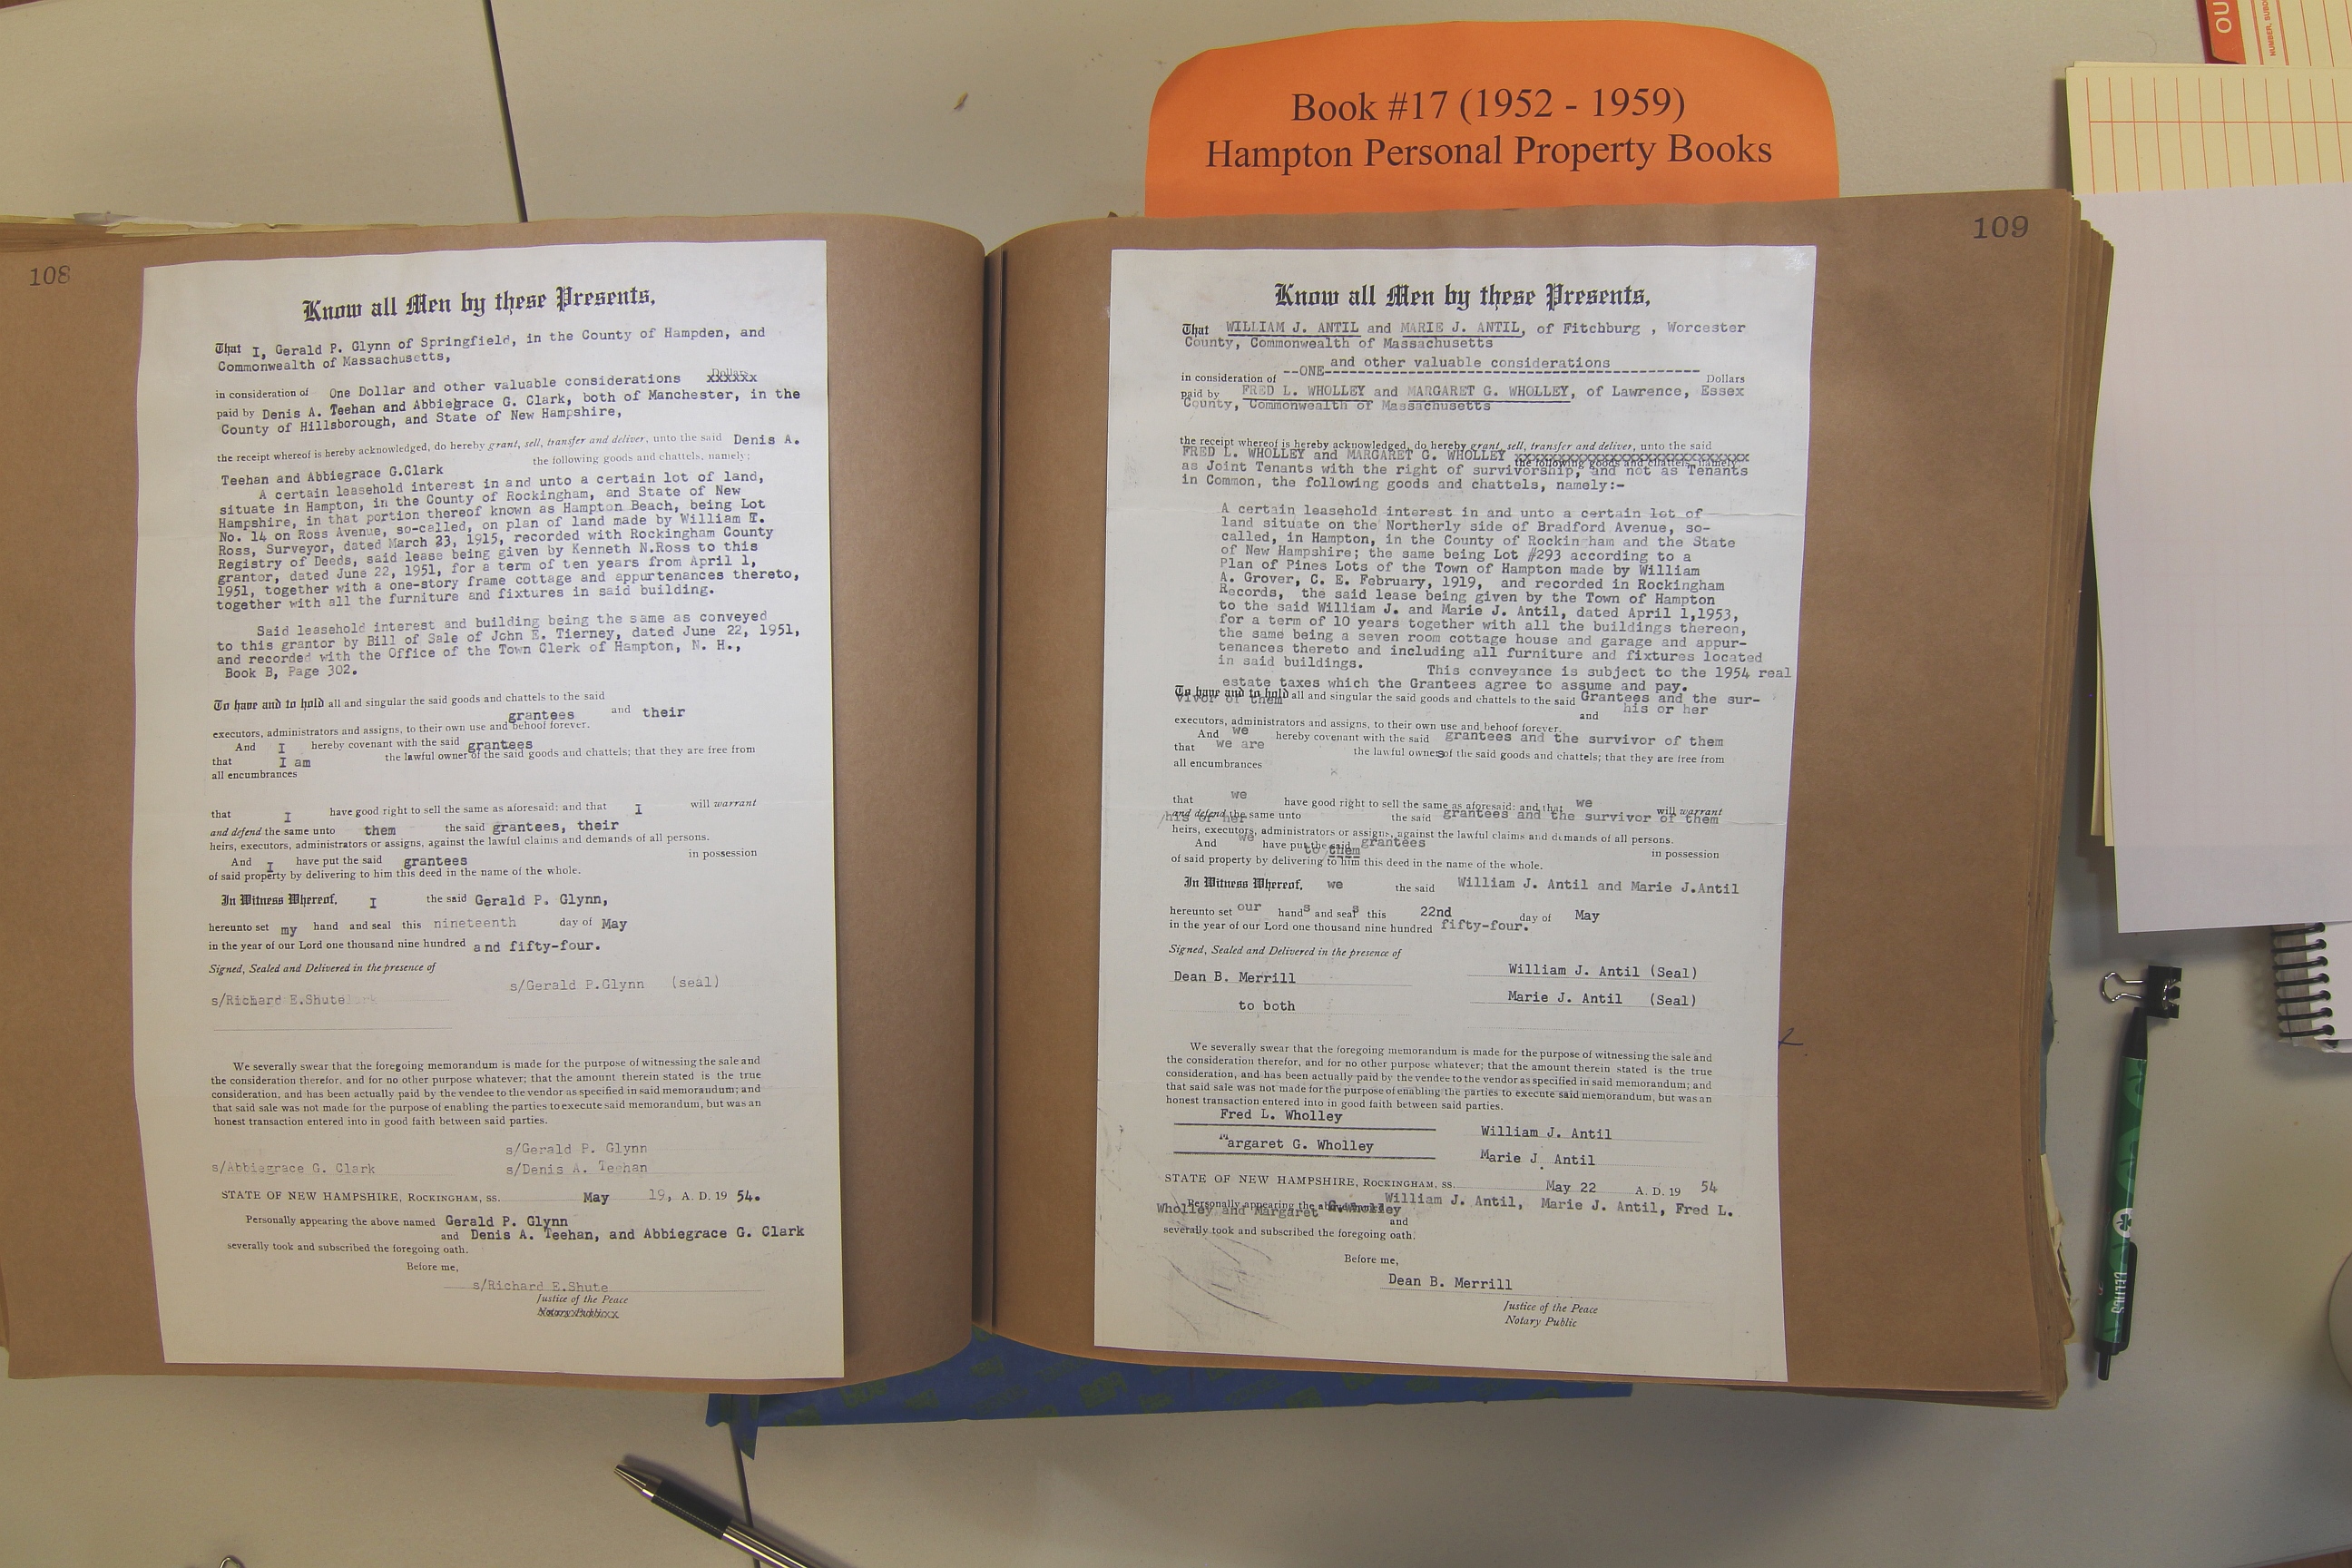 Book #17 (1952 - 1959)
Hampton Personal Property Books
108
Know all Men by these Presents,
That I, Gerald P. Glynn of Springfield, in the County of Hampden, and
Commonwealth of Massachusetts,
in consideration of One Dollar and other valuable considerations Dollars xxxxxx
paid by Denis A. Teehan and Abbiegrace G. Clark, both of Manchester, in the
County of Hillsborough, and State of New Hampshire,
the receipt whereof is hereby acknowledged, do hereby grant, sell, transfer and deliver, unto the said Denis A.
Teehan and Abbiegrace G.Clark the following goods and chattels, namely;
A certain leasehold interest in and unto a certain lot of land,
situate in Hampton, in the County of Rockingham, and State of New
Hampshire, in that portion thereof known as Hampton Beach, being Lot
No. 14 on Ross Avenue, so-called, on plan of land made by William T.
Ross, Surveyor, dated March 23, 1915, recorded with Rockingham County
Registry of Deeds, said lease being given by Kenneth N.Ross to this
grantor, dated June 22, 1951, for a term of ten years from April 1,
1951, together with a one-story frame cottage and appurtenances thereto,
together with all the furniture and fixtures in said building.
Said leasehold interest and building being the same as conveyed
to this grantor by Bill of Sale of John E. Tierney, dated June 22, 1951,
and recorded with the Office of the Town Clerk of Hampton, N. H.,
Book B, Page 302.
To have and to hold all and singular the said goods and chattels to the said
grantees and their
executors, administrators and assigns, to their own use and behoof forever.
And I hereby covenant with the said grantees
that I am the lawful owner of the said goods and chattels; that they are free from
all encumbrances
that I have good right to sell the same as aforesaid: and that I will warrant
and defend the same unto them the said grantees, their
heirs, executors, administrators or assigns, against the lawful claims and demands of all persons.
And I have put the said grantees in possession
of said property by delivering to him this deed in the name of the whole.
In Witness Whereof, I the said Gerald P. Glynn,
hereunto set my hand and seal this nineteenth day of May
in the year of our Lord one thousand nine hundred and fifty-four.
Signed, Sealed and Delivered in the presence of
s/Gerald P.Glynn (seal)
s/Richard E.Shute
We severally swear that the foregoing memorandum is made for the purpose of witnessing the sale and
the consideration therefor, and for no other purpose whatever; that the amount therein stated is the true
consideration, and has been actually paid by the vendee to the vendor as specified in said memorandum; and
that said sale was not made for the purpose of enabling the parties to execute said memorandum, but was an
honest transaction entered into in good faith between said parties.
s/Gerald P. Glynn
s/Abbiegrace G. Clark s/Denis A. Teehan
STATE OF NEW HAMPSHIRE, ROCKINGHAM, SS. May 19, A. D. 19 54.
Personally appearing the above named Gerald P. Glynn
and Denis A. Teehan, and Abbiegrace G. Clark
severally took and subscribed the foregoing oath.
Before me,
s/Richard E.Shute
Justice of the Peace
109
Know all Men by these Presents,
That WILLIAM J. ANTIL and MARIE J. ANTIL, of Fitchburg , Worcester
County, Commonwealth of Massachusetts
and other valuable considerations
in consideration of --ONE-- Dollars
paid by FRED L. WHOLLEY and MARGARET G. WHOLLEY, of Lawrence, Essex
County, Commonwealth of Massachusetts
the receipt whereof is hereby acknowledged, do hereby grant, sell, transfer and deliver, unto the said
FRED L. WHOLLEY and MARGARET G. WHOLLEY the following goods and chattels, namely:
as Joint Tenants with the right of survivorship, and not as Tenants
in Common, the following goods and chattels, namely:-
A certain leasehold interest in and unto a certain lot of
land situate on the Northerly side of Bradford Avenue, so-
called, in Hampton, in the County of Rockingham and the State
of New Hampshire; the same being Lot #293 according to a
Plan of Pines Lots of the Town of Hampton made by William
A. Grover, C. E. February, 1919, and recorded in Rockingham
Records, the said lease being given by the Town of Hampton
to the said William J. and Marie J. Antil, dated April 1,1953,
for a term of 10 years together with all the buildings thereon,
the same being a seven room cottage house and garage and appur-
tenances thereto and including all furniture and fixtures located
in said buildings. This conveyance is subject to the 1954 real
estate taxes which the Grantees agree to assume and pay.
To have and to hold all and singular the said goods and chattels to the said Grantees and the sur-
vivor of them and his or her
executors, administrators and assigns, to their own use and behoof forever.
And we hereby covenant with the said grantees and the survivor of them
that we are the lawful owners of the said goods and chattels; that they are free from
all encumbrances
that we have good right to sell the same as aforesaid: and that we will warrant
and defend the same unto the said grantees and the survivor of them
his or her
heirs, executors, administrators or assigns, against the lawful claims and demands of all persons.
And we have put the said grantees in possession
to them
of said property by delivering to him this deed in the name of the whole.
In Witness Whereof, we the said William J. Antil and Marie J.Antil
hereunto set our hands and seals this 22nd day of May
in the year of our Lord one thousand nine hundred fifty-four.
Signed, Sealed and Delivered in the presence of
Dean B. Merrill William J. Antil (Seal)
to both Marie J. Antil (Seal)
We severally swear that the foregoing memorandum is made for the purpose of witnessing the sale and
the consideration therefor, and for no other purpose whatever; that the amount therein stated is the true
consideration, and has been actually paid by the vendee to the vendor as specified in said memorandum; and
that said sale was not made for the purpose of enabling the parties to execute said memorandum, but was an
honest transaction entered into in good faith between said parties.
Fred L. Wholley William J. Antil
Margaret G. Wholley Marie J. Antil
STATE OF NEW HAMPSHIRE, ROCKINGHAM, SS. May 22 A. D. 19 54
Personally appearing the above William J. Antil, Marie J. Antil, Fred L.
Wholley and Margaret G. Wholley
and
severally took and subscribed the foregoing oath.
Before me,
Dean B. Merrill
Justice of the Peace
Notary Public
OU